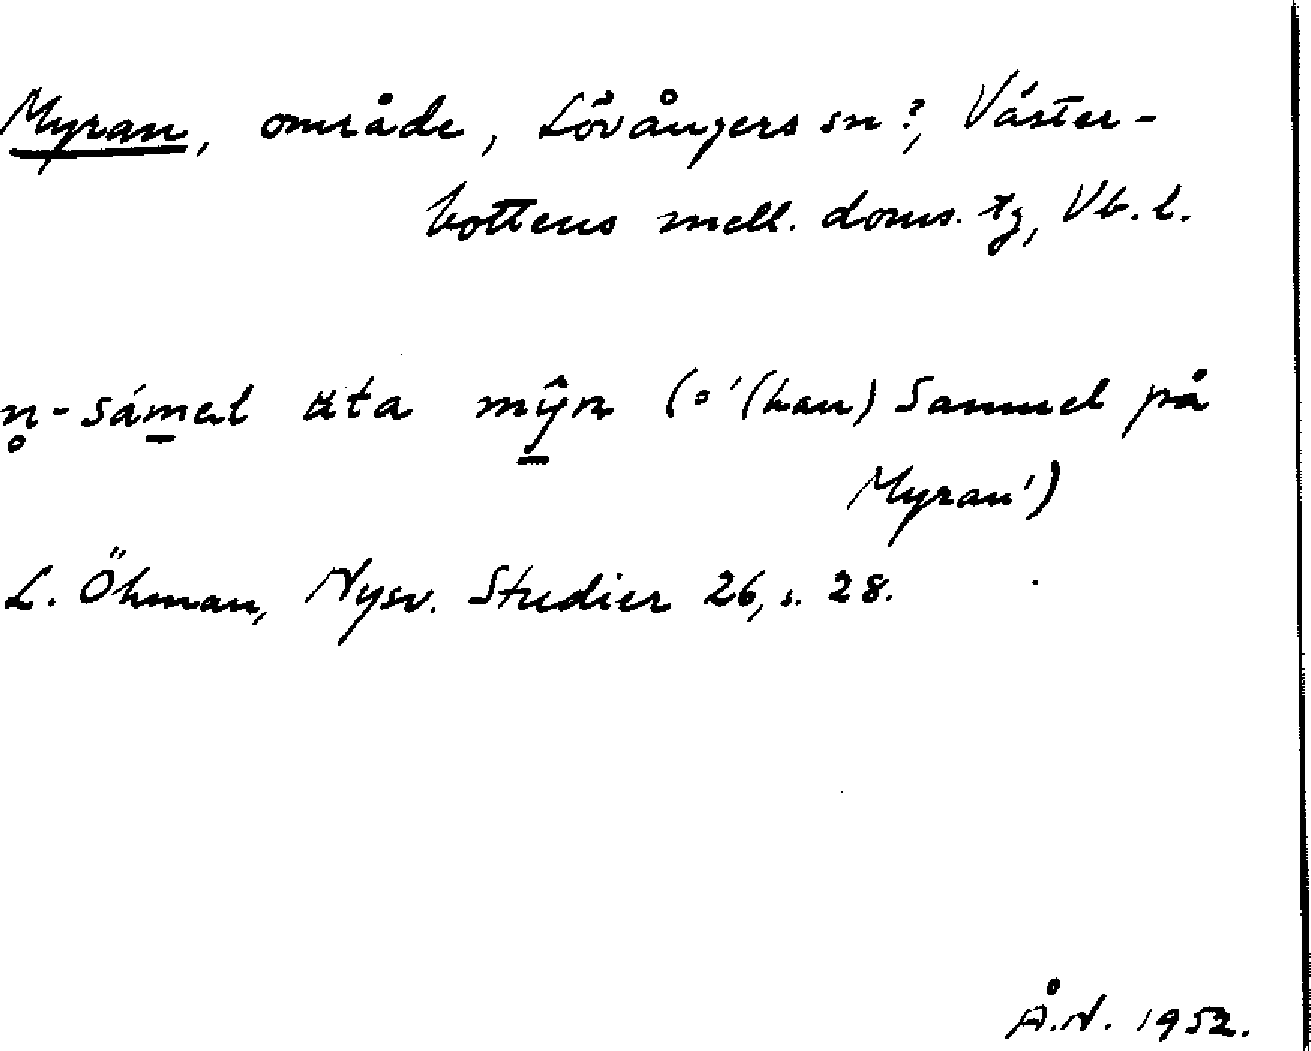 Myran, område, Lövångers sn?, Väster-
bottens mell. doms. tg, Vb. l.
n̥-sám̲al äta mŷ̲n (ɔ'(han) Samuel på
Myran')
L. Öhman, Nysv. Studier 26, s. 28.
Å.N. 1952.